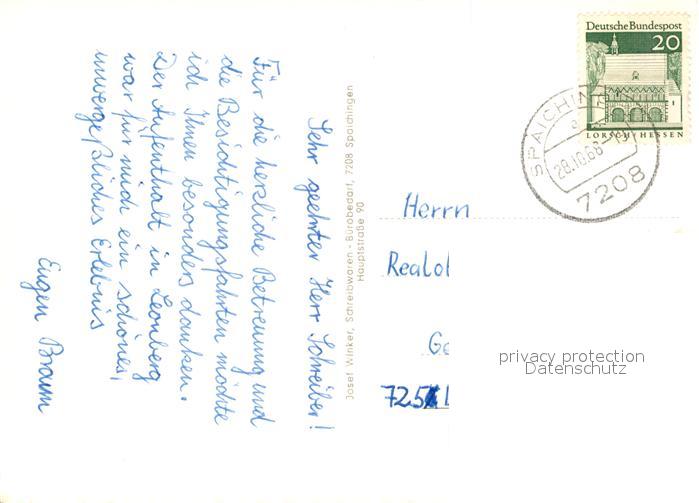 Sehr geehrter Herr Schreiber!
Für die herzliche Betreuung und
die Besichtigungsfahrten möchte
ich Ihnen besonders danken.
Der Aufenthalt in Leonberg
war für mich ein schönes,
unvergeßliches Erlebnis
Eugen Braum
Josef Winker, Schreibwaren - Bürobedarf, 7208 Spaichingen
Hauptstraße 90
Deutsche Bundespost
20
LORSCH / HESSEN
SPAICHINGEN
a
28.10.68
7208
Herrn
Realol
Ge
725
privacy protection
Datenschutz